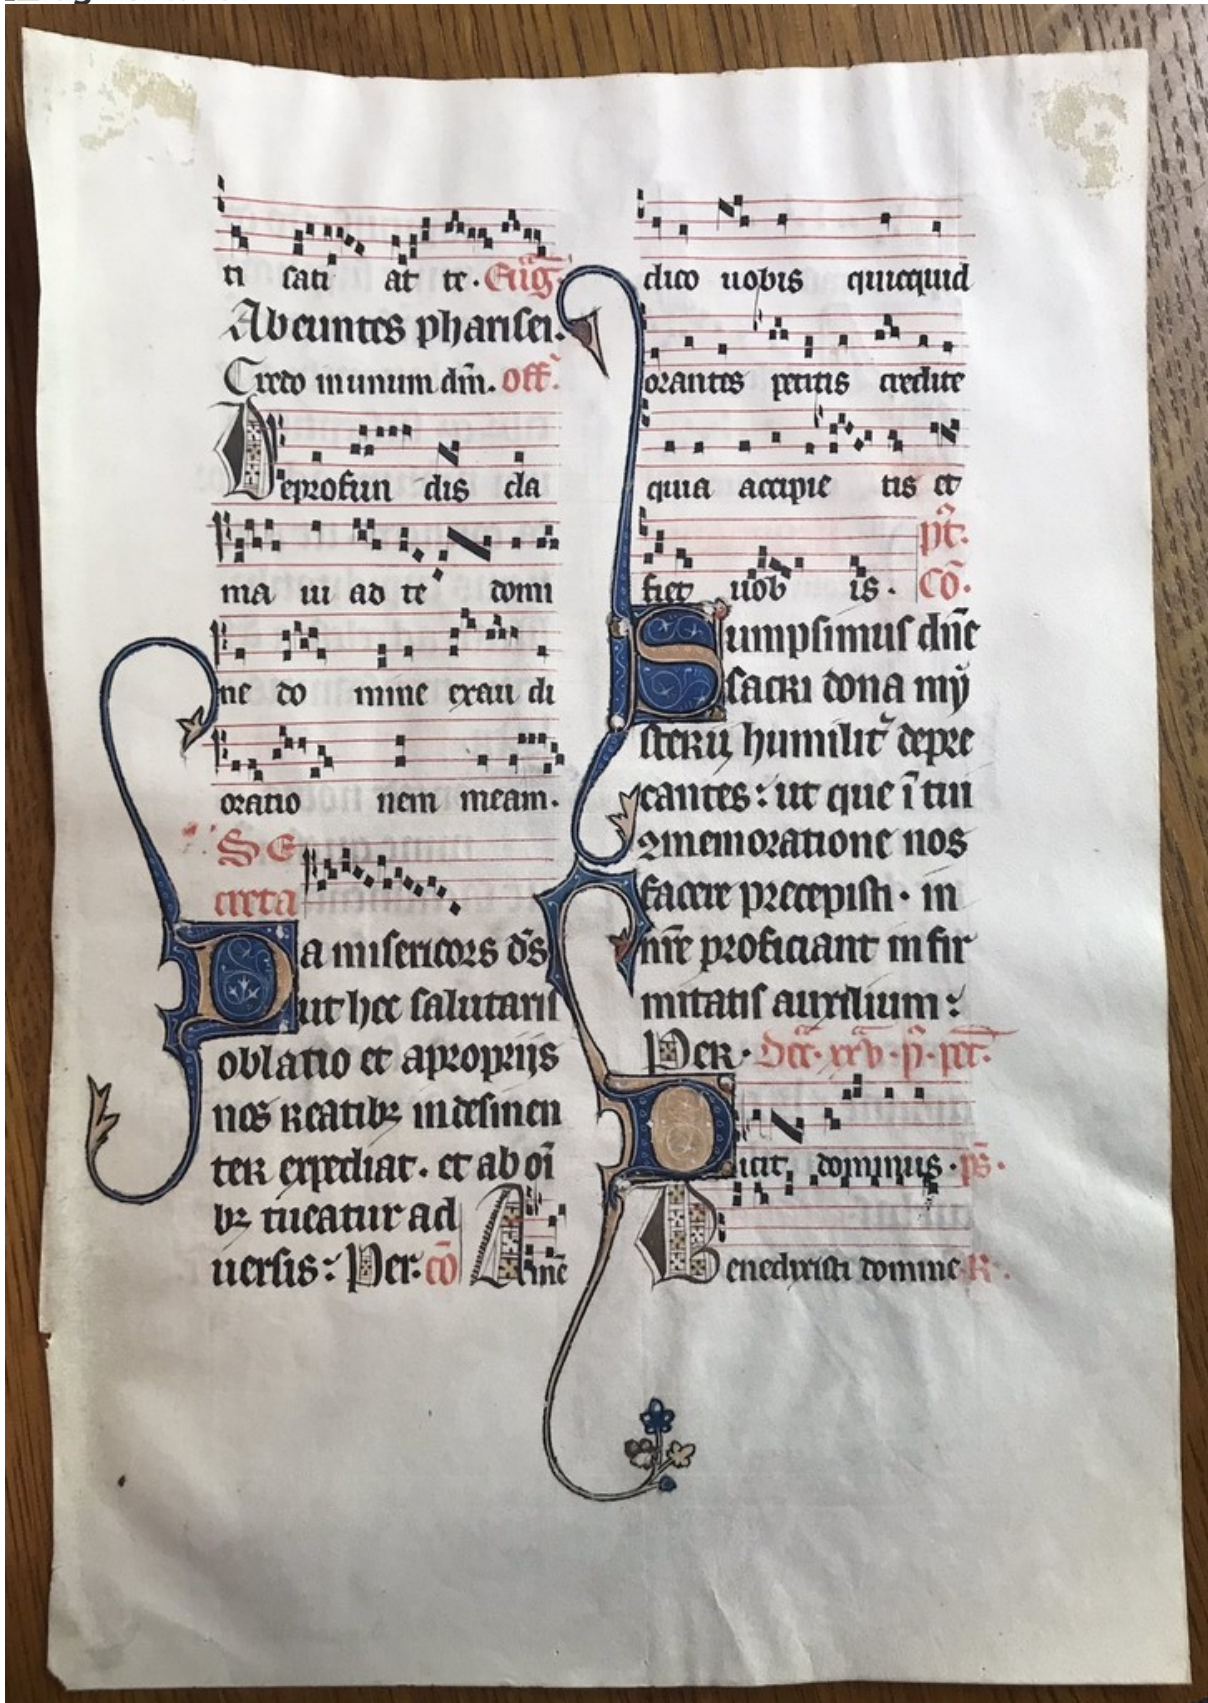 ti sati at te. Eũg̃.
Abeuntes pharisei.
Credo in unum dm̃. off̃.
Deprofun dis cla
ma ui ad te domi
ne do mine exau di
oratio nem meam.
SE
creta
Da misericors d̃s
ut hec salutaris
oblatio et a proprijs
nos reatibꝫ indesinen
ter expediat. et ab oĩ
bꝫ tueatur ad
uersis: Per. cõ Amẽ
dico uobis quicquid
orantes petitis credite
quia accipie tis et
fiet uob is. p̃t.
Cõ.
Sumpsimus dñe
sacri dona mÿ
sterij humilit̃ depre
cantes: ut que ĩ tui
ꝯmemoratione nos
facere precepisti. in
nr̃e proficiant infir
mitatis auxilium:
Per. Dc̃a. xxv. p̃. pc̃t.
Dicit dominus. ps̃.
Benedixisti domine R.